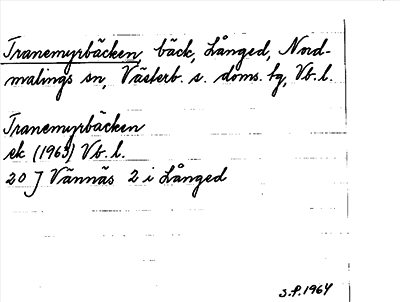 Tranemyrbäcken, bäck, Långed, Nord-
malings sn, Västerb. s. doms. tg, Vb. l.
Tranemyrbäcken
ek (1963) Vb. l.
20 J Vännäs 2 i Långed
S.P. 1964